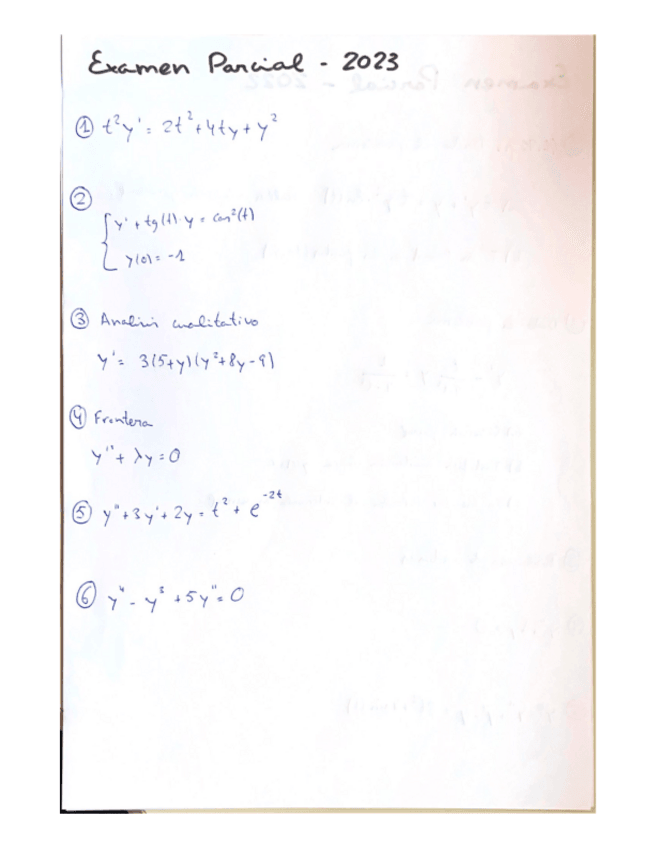 Examen Parcial - 2023
① t²y' = 2t² + 4ty + y²
②
y' + tg(t)·y = cos²(t)
y(0) = -1
③ Analisis cualitativo
y' = 3(5+y)(y²+8y-9)
④ Frontera
y'' + λy = 0
⑤ y'' + 3y' + 2y = t² + e^-2t
⑥ y⁴ - y³ + 5y'' = 0